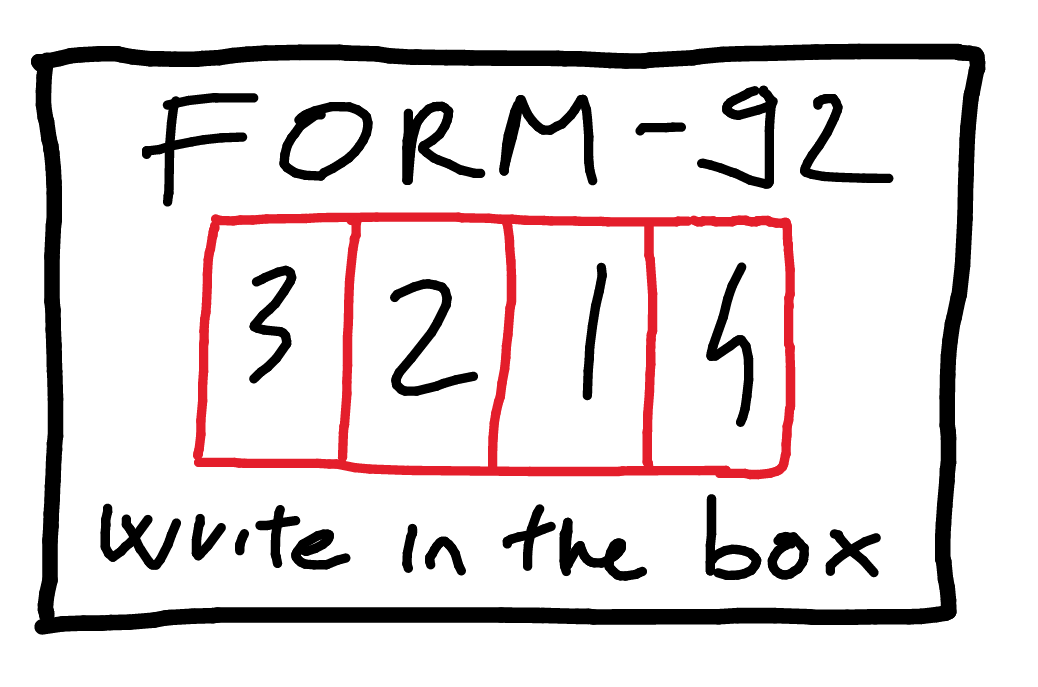 FORM-92
3 2 1 4
write in the box